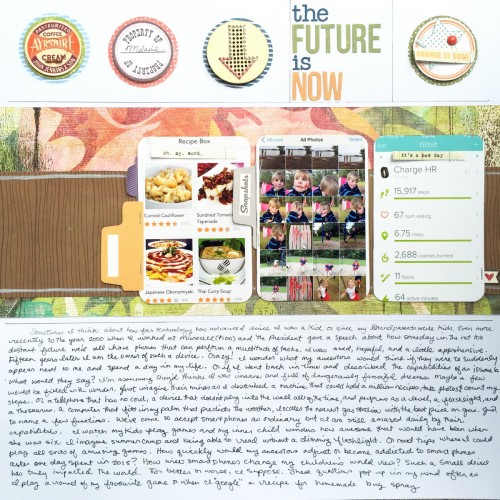 PASTEURIZED
COFFEE
AYRSHIRE
CREAM
PROPERTY OF
Melanie
PROPERTY OF
the
FUTURE
is
NOW
CHANGE IS GOOD
Recipe Box
Oh. my. word.
Curried Cauliflower
Sundried Tomato Tapenade
Japanese Okonomiyaki
Thai Curry Soup
Snapshots
Albums
All Photos
Select
fitbit
It's a new day
Charge HR
15,917 steps
67 bpm resting
6.75 miles
2,688 calories burned
11 floors
64 active minutes
Sometimes I think about how far technology has advanced since I was a kid. Or since my Grandparents were kids. Even more
recently to the year 2000 when I worked at and the President gave a speech about how someday in the not too
distant future we'd all have phones that can perform a multitude of tasks. I was awed, hopeful, and a little apprehensive.
Fifteen years later I am the owner of such a device. Crazy! I wonder what my ancestors would think if they were to suddenly
appear next to me and spend a day in my life. Or if I went back in time and described the capabilities of an iphone 6.
What would they say? I'm assuming they'd think I was insane and full of dangerously fanciful dreams. Maybe a few
would be filled with wonder.
a telephone that has no cord, a device that
a thesaurus. A computer that fits in my palm that predicts the weather, the nearest gas station with the best price on gas. Just
to name a few functions. We've come to accept smart phones as ordinary but I am still amazed daily by their
capabilities. I watch my kids play games and my inner child wonders how awesome that would have been when
she was six. I imagine summer camp and being able to read without a dimming flashlight. Or road trips where I could
play all sorts of amazing games. How quickly would my ancestors adjust to become addicted to smart phones
after one day spent in 2015? How will smart phones change my children's world view? Such a small device
has truly impacted the world. For better or worse, I suppose. These questions pop up in my mind often, as
I play a round of my favourite game or when I "google" a recipe for homemade bug spray.